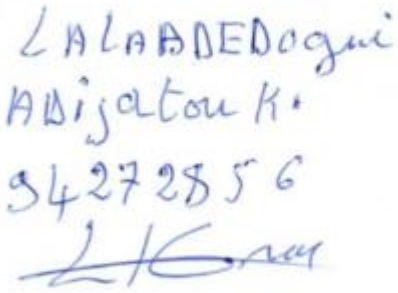 LALABADEDogui
ADijatou K.
94272856